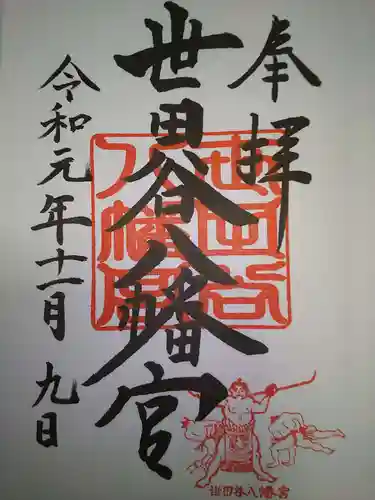 奉拝
世田谷八幡宮
世田谷
八幡宮
令和元年十一月九日
世田谷八幡宮